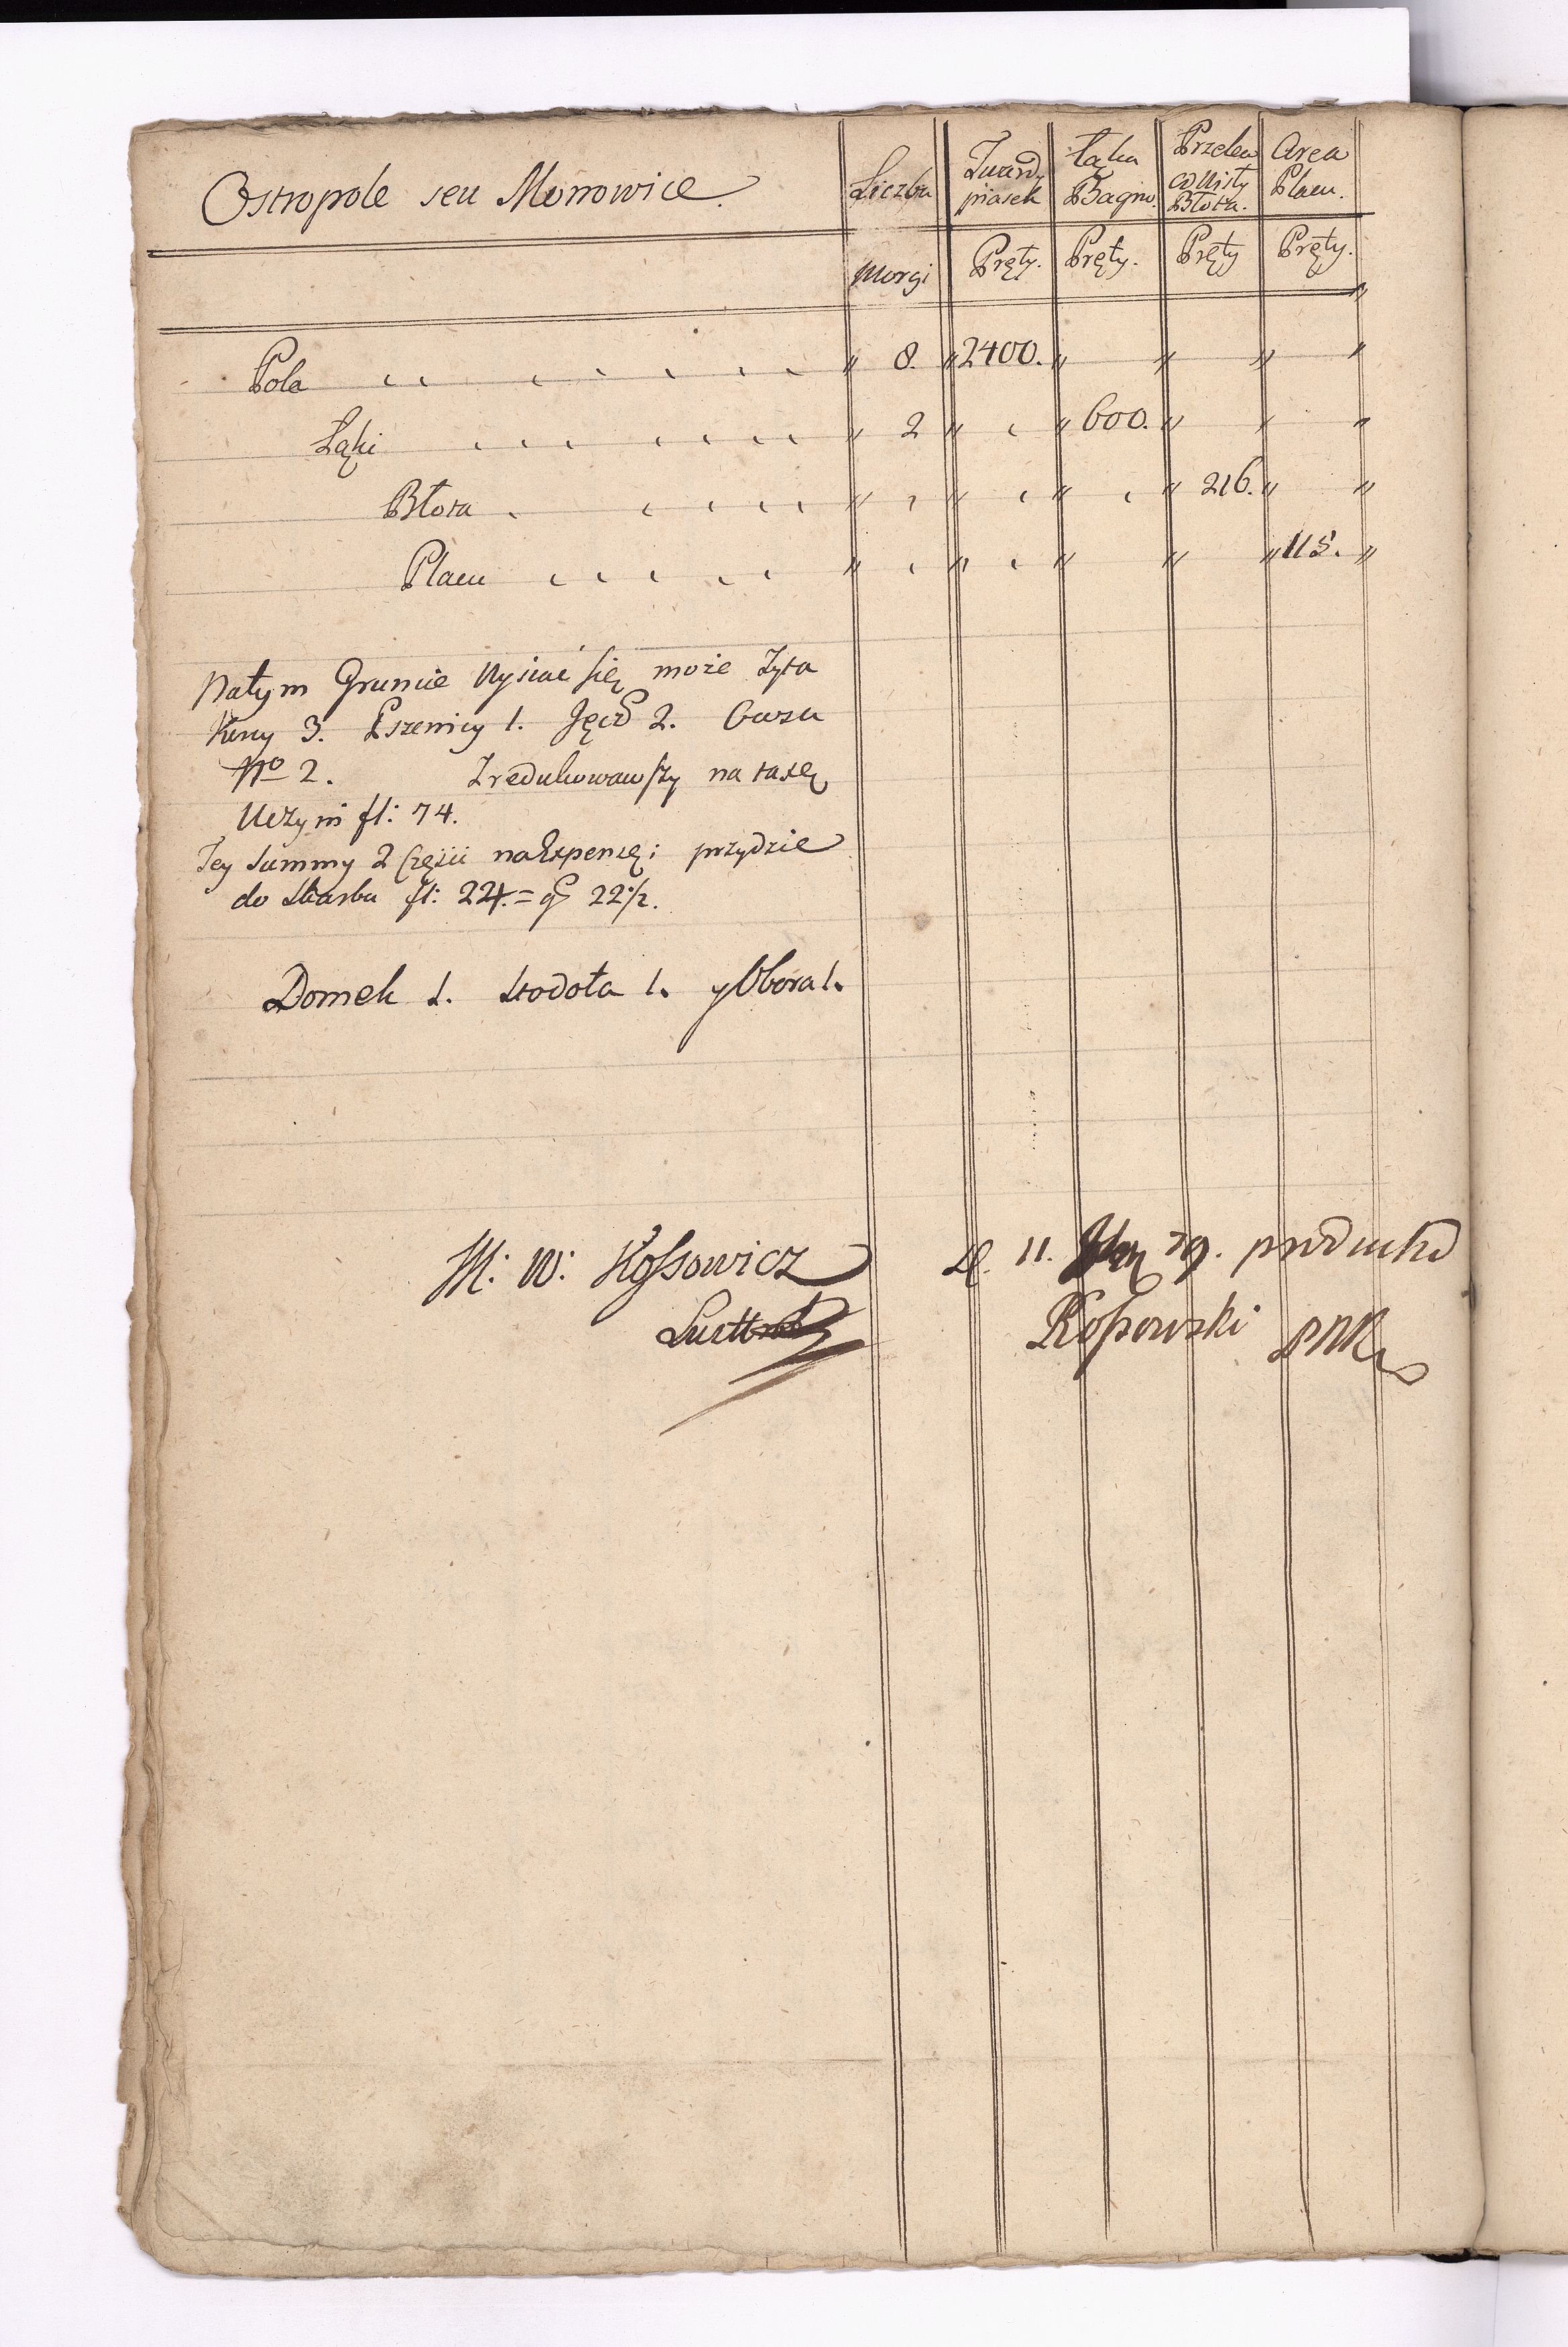 Ostropole seu Morrowice.
Liczba
Twardy piasek
Łąka Bagno.
Przelew Błota.
Area Placu.
Morgi
Pręty.
Pręty.
Pręty
Pręty.
Pola 8. 2400.
Łąki 2 600.
Błota 216.
Placu 115.
Natym Gruncie Wysiać się może Żyta
Korcy 3. Pszenicy 1. Jęcz 2. Owsa
No 2. Zredukowawszy na taxę
Uczyni fl: 74.
Tey Summy 2 Części na Expensę: przydzie
do Skarbu fl: 24.= g 22½.
Domek 1. Stodoła 1. y Obora 1.
M: W: Kossowicz
D. 11. 79.
Lustrator
Kossowski